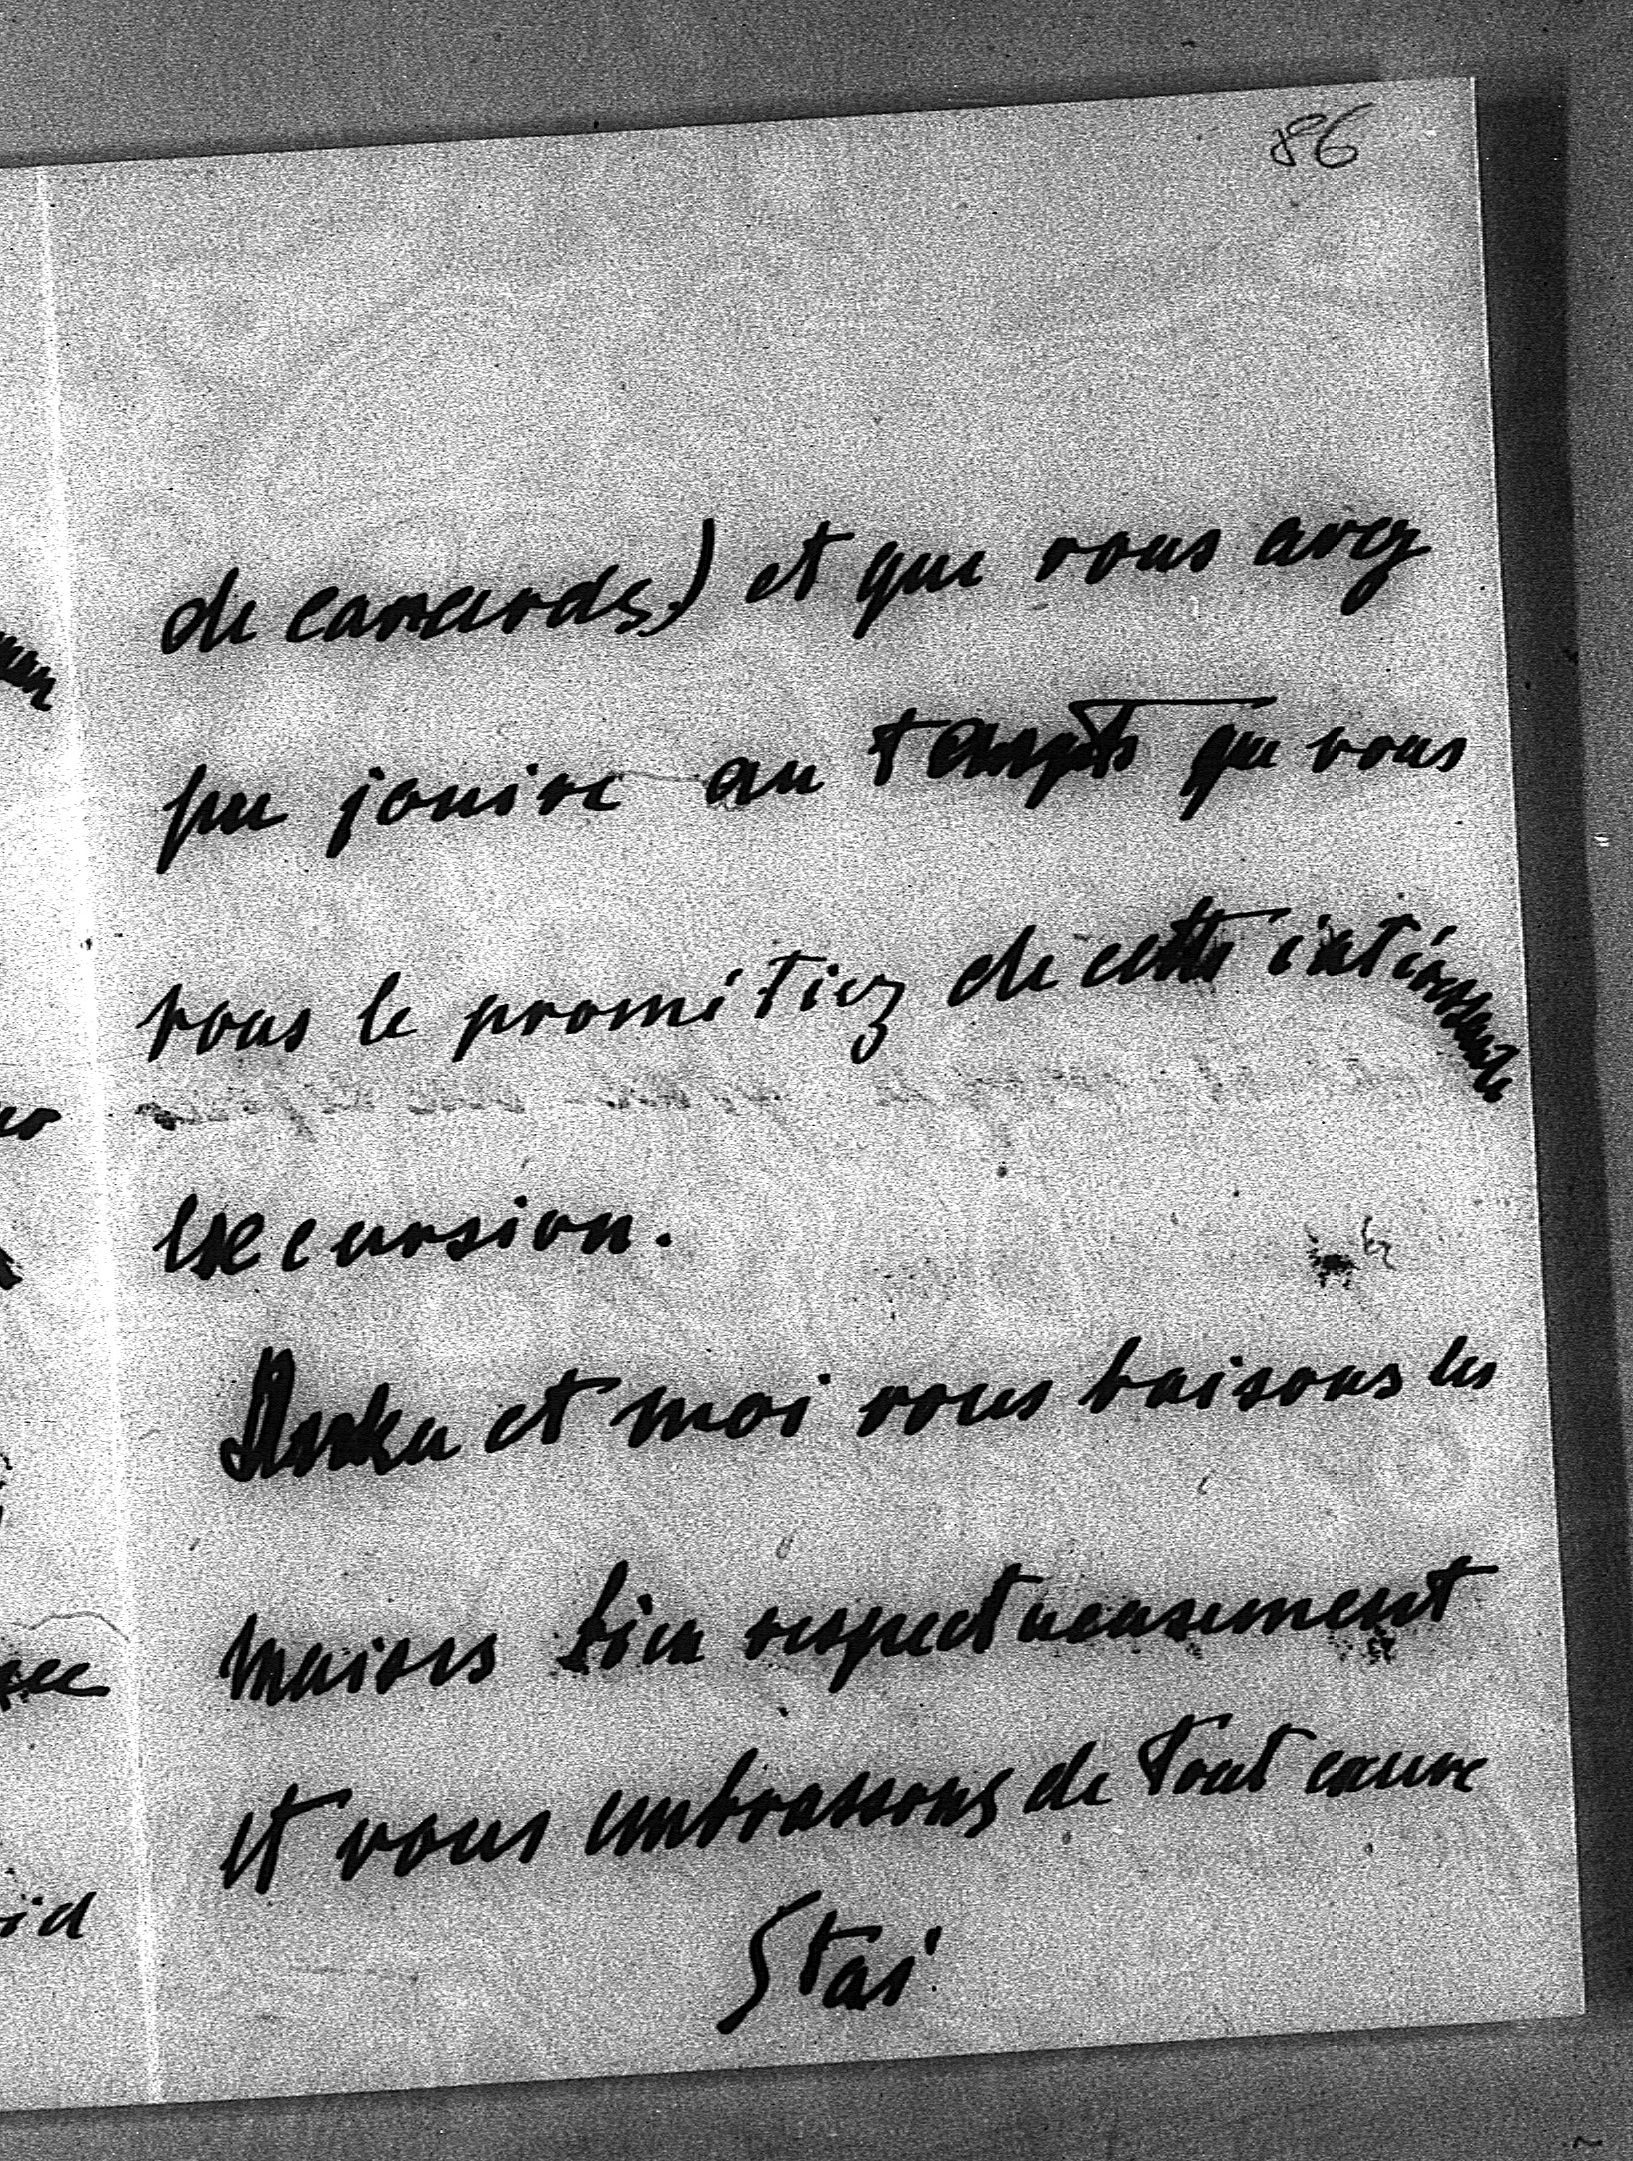 86
de canards) et que vous avez
pu jouire au tempts que vous
vous le prométiez de cette intéressante
excursion.
et moi vous baisons les
maires bien respectueusement
et vous embrassons de tout cœure
Stas